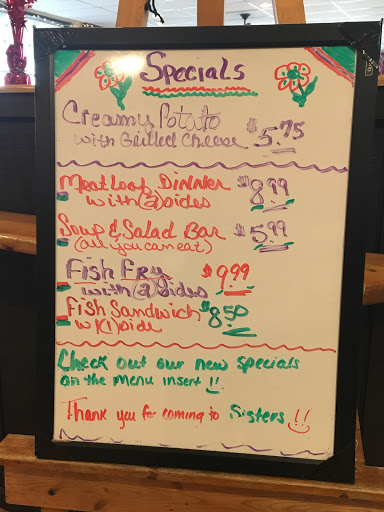 Specials
Creamy Potato
with Grilled Cheese $5.75
Meatloaf Dinnner $8.99
with (2) sides
Soup & Salad Bar $5.99
(all you can eat)
Fish Fry $9.99
with (2) sides
Fish Sandwich $8.50
w/(1) side
Check out our new specials
on the menu insert !!
Thank you for coming to Sisters !!